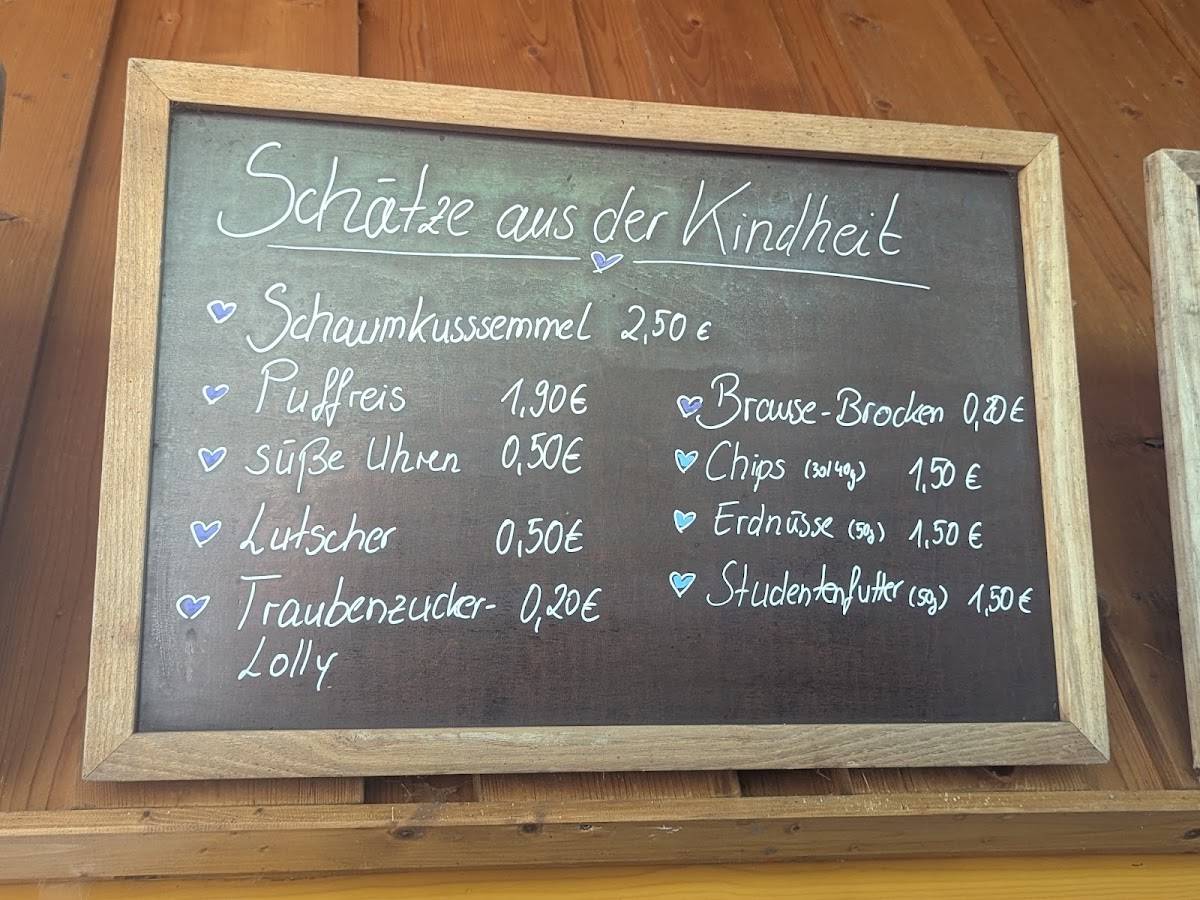 Schätze aus der Kindheit
Schaumkusssemmel 2,50 €
Puffreis 1,90 €
süße Uhren 0,50€
Lutscher 0,50€
Traubenzucker- 0,20€
Lolly
Brause-Brocken 0,20€
Chips (30/40g) 1,50 €
Erdnüsse (50g) 1,50 €
Studentenfutter (50g) 1,50€